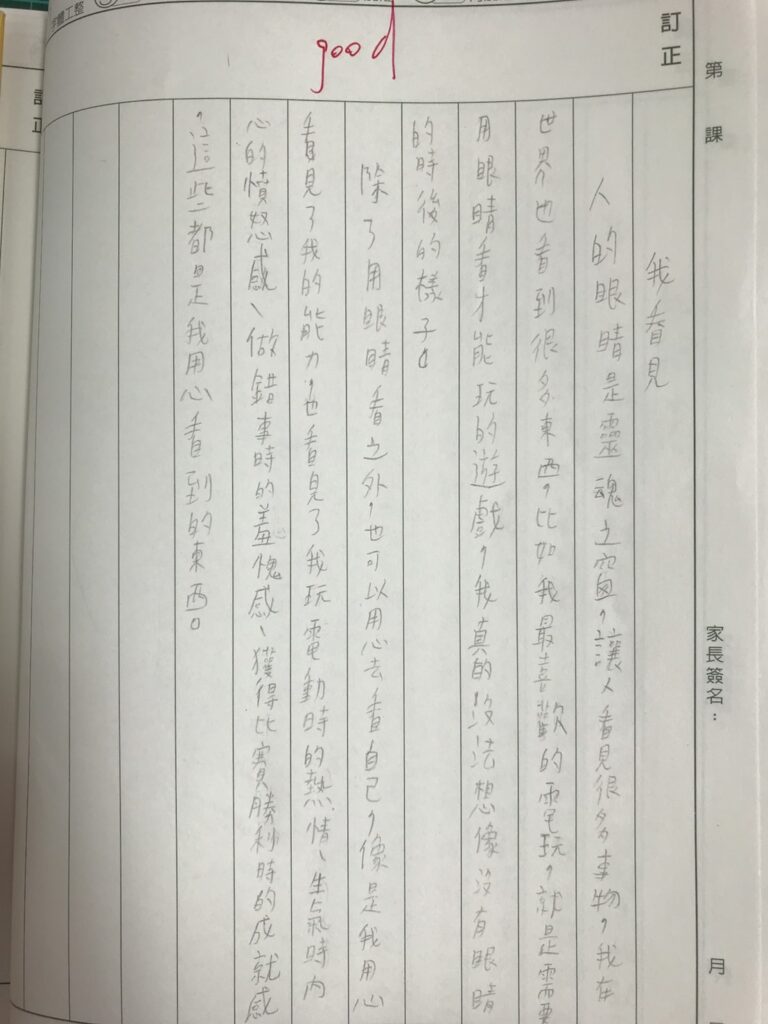 字體工整
good
訂正
第 課
家長簽名：
月
訂正
我看見
人的眼睛是靈魂之窗，讓人看見很多事物，我在
世界也看到很多東西，比如我最喜歡的電玩，就是需要
用眼睛看才能玩的遊戲，我真的沒法想像沒有眼睛
的時後的樣子。
除了用眼睛看之外，也可以用心去看自己，像是我用心
看見了我的能力，也看見了我玩電動時的熱情、生氣時內
心的憤怒感、做錯事時的羞愧感、獲得比賽勝利時的成就感
，這些都是我用心看到的東西。